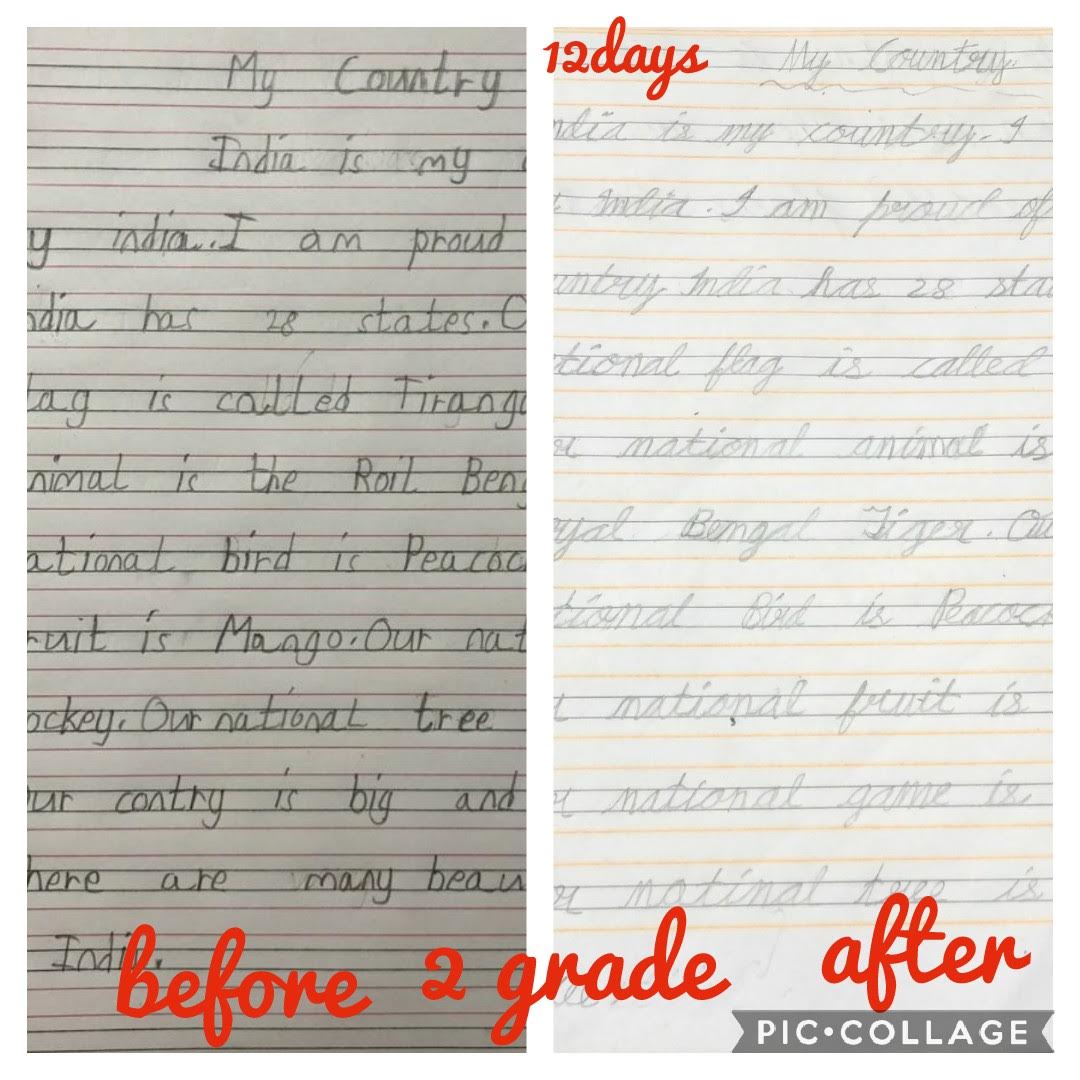 12days
My Country
India is my
y india. I am proud
ndia has 28 states. O
lag is callled Tirang
nimal is the Roil Beng
ational bird is Peacoc
ruit is Mango. Our nat
ockey. Our national tree
ur contry is big and
here are many beau
India.
My Country.
ndia is my country. I
India. I am proud of
untry India has 28 sta
tional flag is called
national animal is
yal Bengal Tiger. Ou
tional Bird is Peacoc
national fruit is
national game is
notinal tree is
before 2 grade after
PIC•COLLAGE